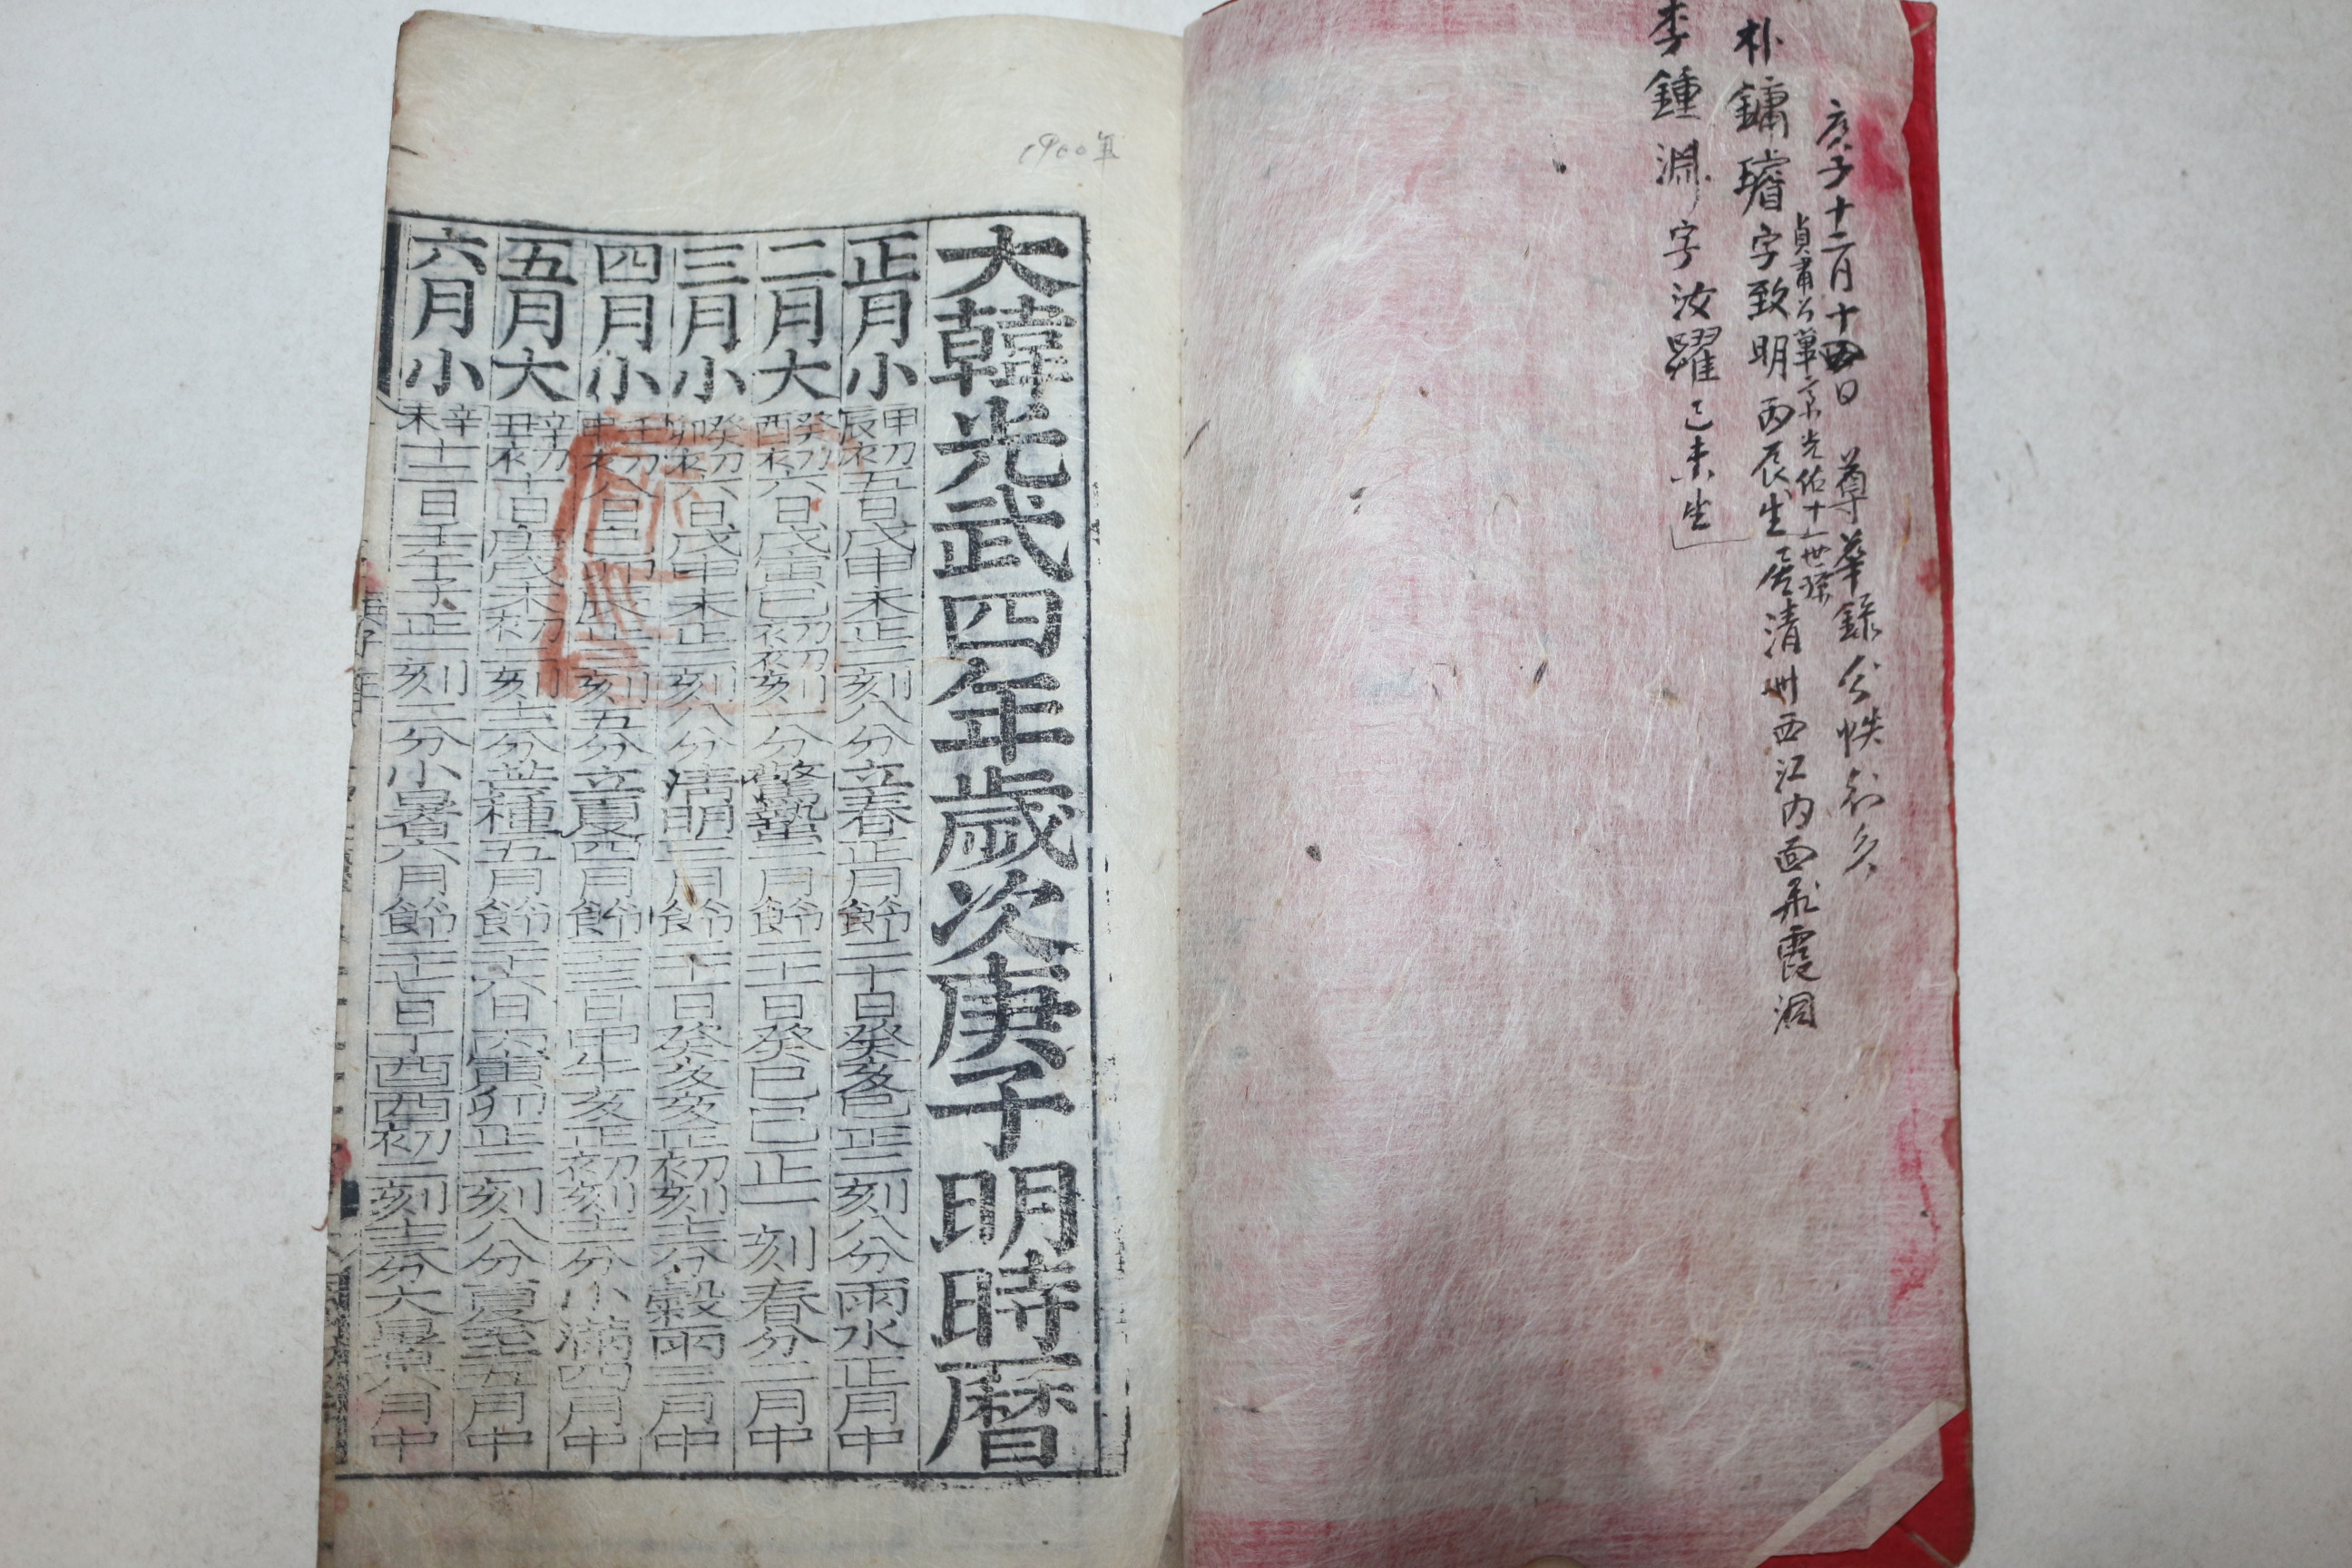 庚子十二月十四日 尊華錄分帙刻久
貞肅公 光佑十 世孫
朴鏞瓘字致明 丙辰生 居清州西江內面 霞洞
李鍾淵 字汝躍 己未生
1900年
大韓光武四年歲次庚子明時曆
正月小 甲辰 初五日戊申未正三刻八分立春正月節二十日癸亥巳正三刻八分雨水正月中
二月大 癸酉 初六日戊寅巳初初刻一分驚蟄二月節二十一日癸巳巳正一刻春分二月中
三月小 癸卯 初六日戊申未正三刻八分清明三月節二十一日癸亥亥正初刻十三分穀雨三月中
四月小 壬申 初八日己卯辰正三刻五分立夏四月節二十三日甲午亥正初刻十三分小滿四月中
五月大 辛丑 初十日庚戌未初二刻十三分芒種五月節二十六日丙寅卯正二刻八分夏至五月中
六月小 辛未 十二日壬子子正三刻二分小暑六月節二十七日丁酉酉初二刻十三分大暑六月中